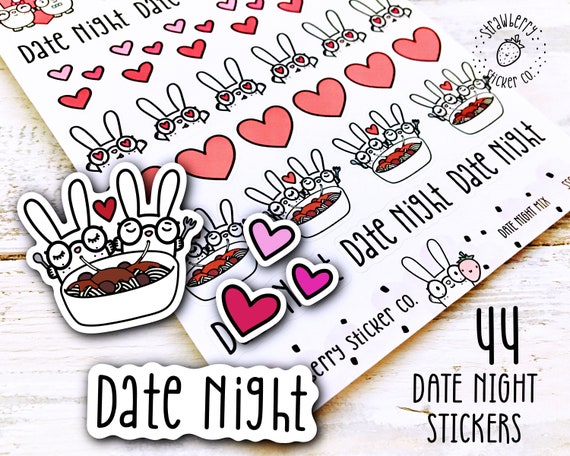 Date Night Date
Strawberry
Sticker Co.
Date Night Date Night Date Night
DATE NIGHT MIX
berry Sticker Co.
Date Night
44
DATE NIGHT
STICKERS